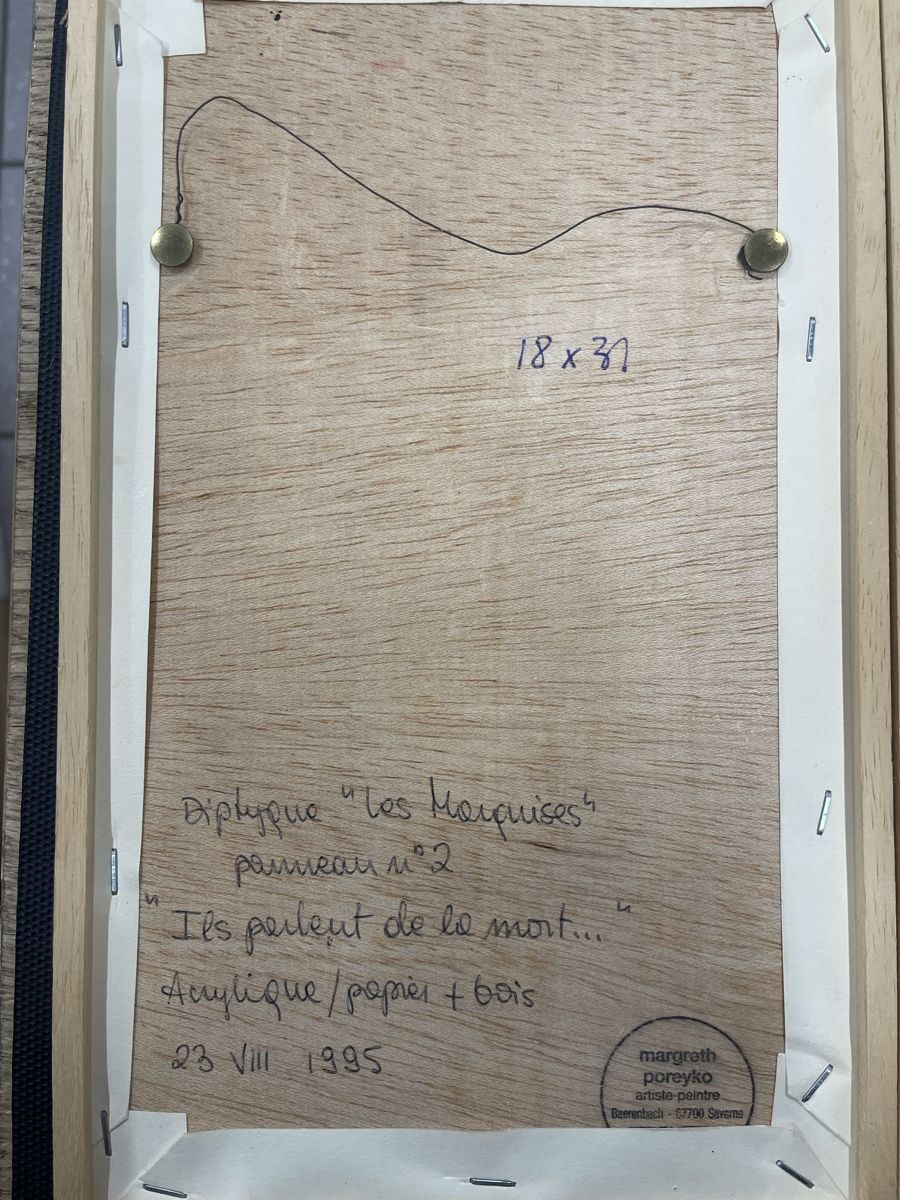 18 x 31
Diptyque "Les Marquises"
panneau n°2
"Ils parlent de la mort..."
Acrylique/papier + bois
23 VIII 1995
margreth
poreyko
artiste-peintre
Baerenbach - 67700 Saverne